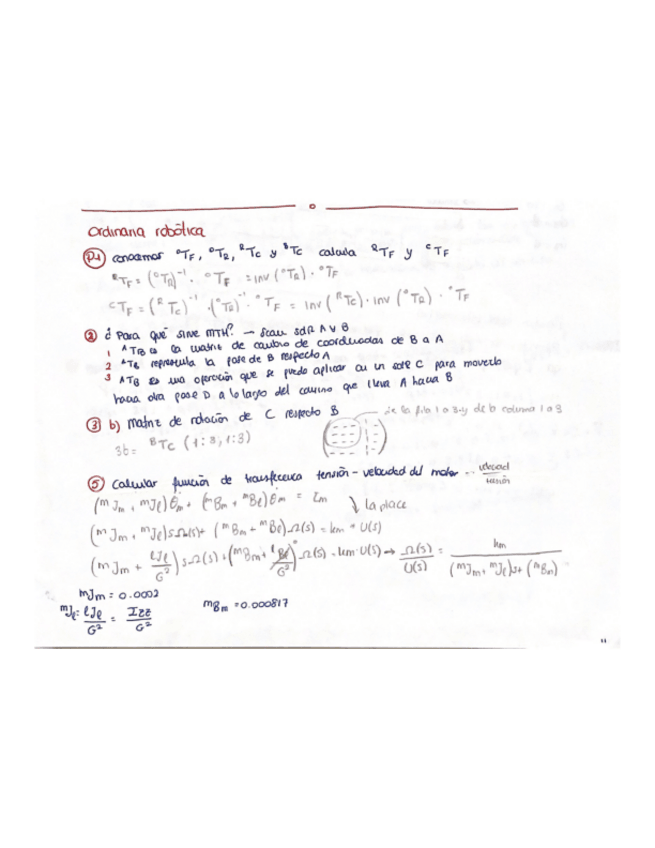 Ordinaria robótica
P1 conocemos ⁰T_F, ⁰T_R, ᴿT_C y ᴮT_C calcula ᴿT_F y ᶜT_F
ᴿT_F = (⁰T_R)⁻¹ · ⁰T_F = inv (⁰T_R) · ⁰T_F
ᶜT_F = (ᴿT_C)⁻¹ · (⁰T_R)⁻¹ · ⁰T_F = inv (ᴿT_C) · inv (⁰T_R) · ⁰T_F
② ¿Para qué sirve MTH? → Sean SdR A y B
1 ᴬT_B es la matriz de cambio de coordenadas de B a A
2 ᴬT_B representa la pose de B respecto A
3 ᴬT_B es una operación que se puede aplicar a un C para moverlo
hacia otra pose D a lo largo del camino que lleva A hacia B
③ b) Matriz de rotación de C respecto B
de la fila 1 a 3 y de la columna 1 a 3
3b = ᴮT_C (1:3, 1:3)
⑤ Calcular función de transferencia tensión - velocidad del motor velocidad / tensión
(ᵐJ_m + ᵐJ_l) θ̈_m + (ᵐB_m + ᵐB_l) θ̇_m = τ_m ↓ La place
(ᵐJ_m + ᵐJ_l) s Ω(s) + (ᵐB_m + ᵐB_l) Ω(s) = km · U(s)
(ᵐJ_m + ˡJ_l / G²) s Ω(s) + (ᵐB_m + ˡB_l / G²) Ω(s) = km · U(s) → Ω(s) / U(s) = km / ((ᵐJ_m + ᵐJ_l) s + (ᵐB_m))
ᵐJ_m = 0.0002
ᵐB_m = 0.000817
ᵐJ_l = ˡJ_l / G² = Izz / G²